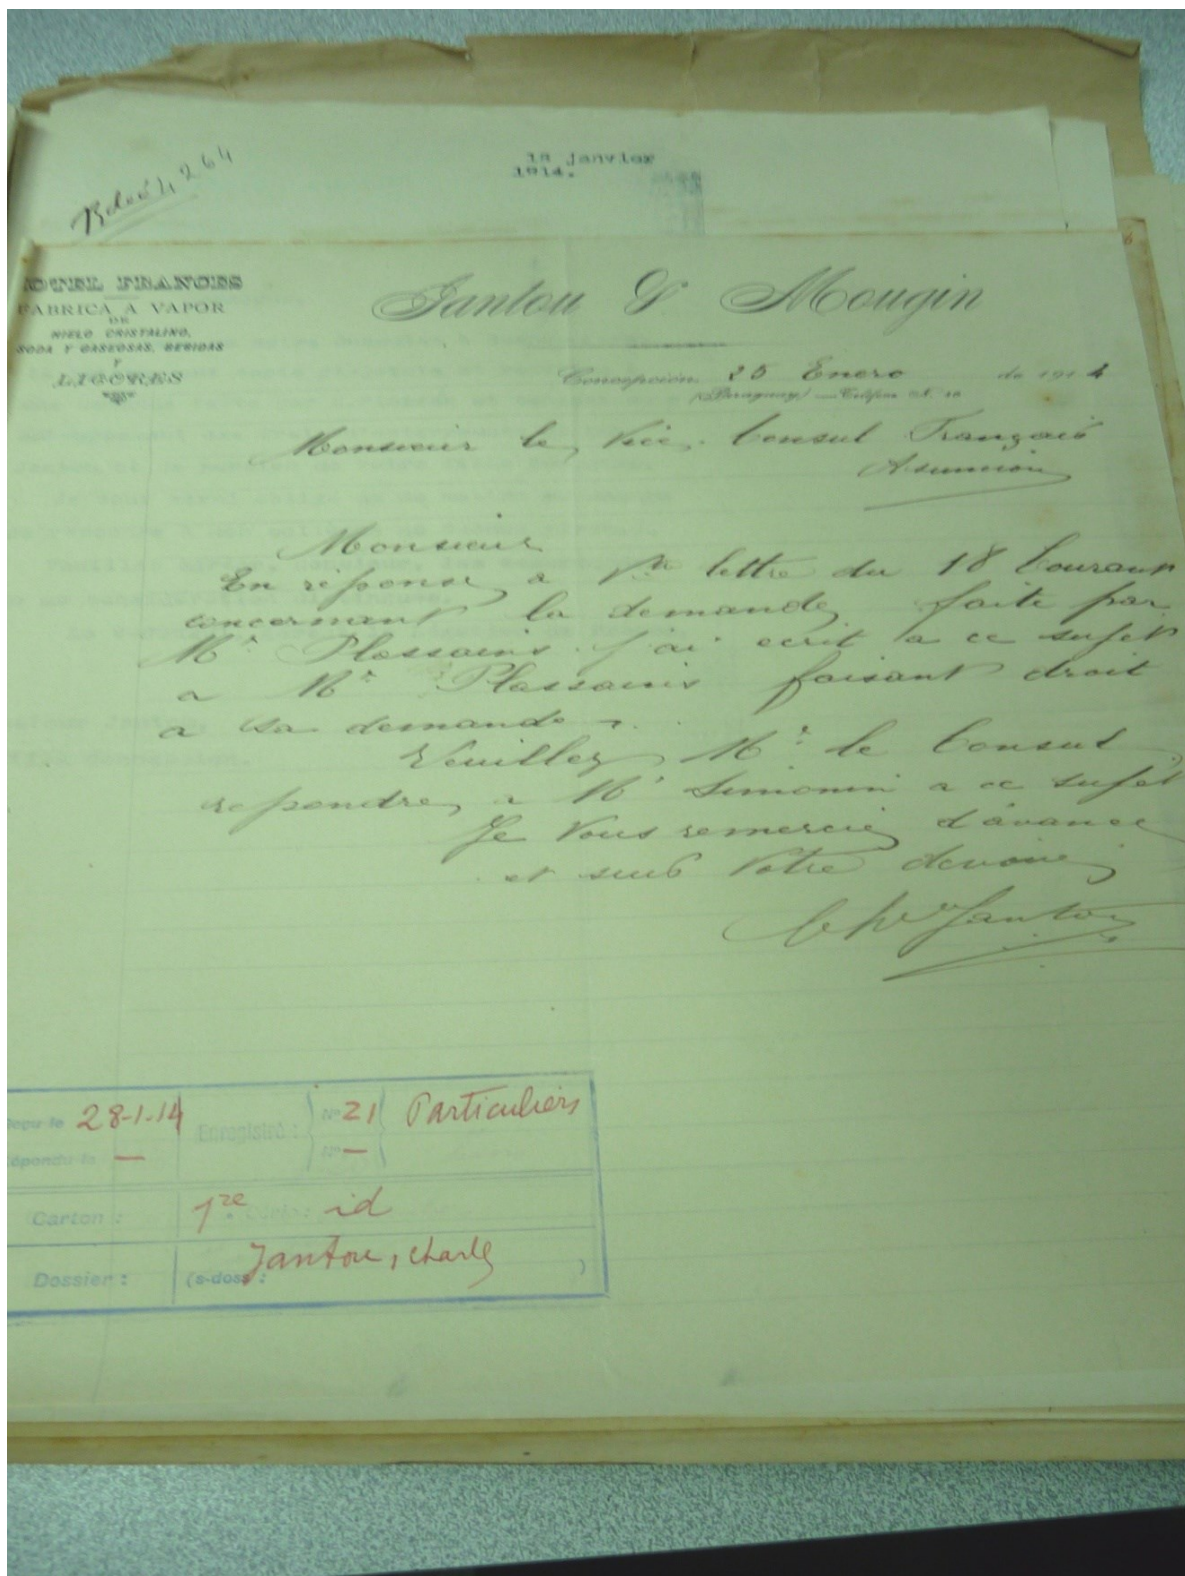 18 janvier
1914.
4264
HOTEL FRANCES
FABRICA A VAPOR
DE
HIELO CRISTALINO,
SODA Y GASEOSAS, BEBIDAS
Y
LICORES
Jantou & Mougin
Concepción 25 Enero de 1914
(Paraguay) Teléfono N. 10
Monsieur le Vice. Consul Français
Asuncion
Monsieur
En réponse a Vre lettre du 18 Courant
concernant la demande faite par
Mr Plassains j'ai ecrit a ce sujet
a Mr Plassains faisant droit
a sa demande.
Veuillez Mr le Consul
repondre a Mr Simonin a ce sujet
Je Vous remercie d'avance
et suis Votre
Jantou
Reçu le 28-1-14 Enregistré : No 21 Particuliers
Répondu le — No —
Carton : 1re id
Dossier : (s-doss : Jantou, Charles )